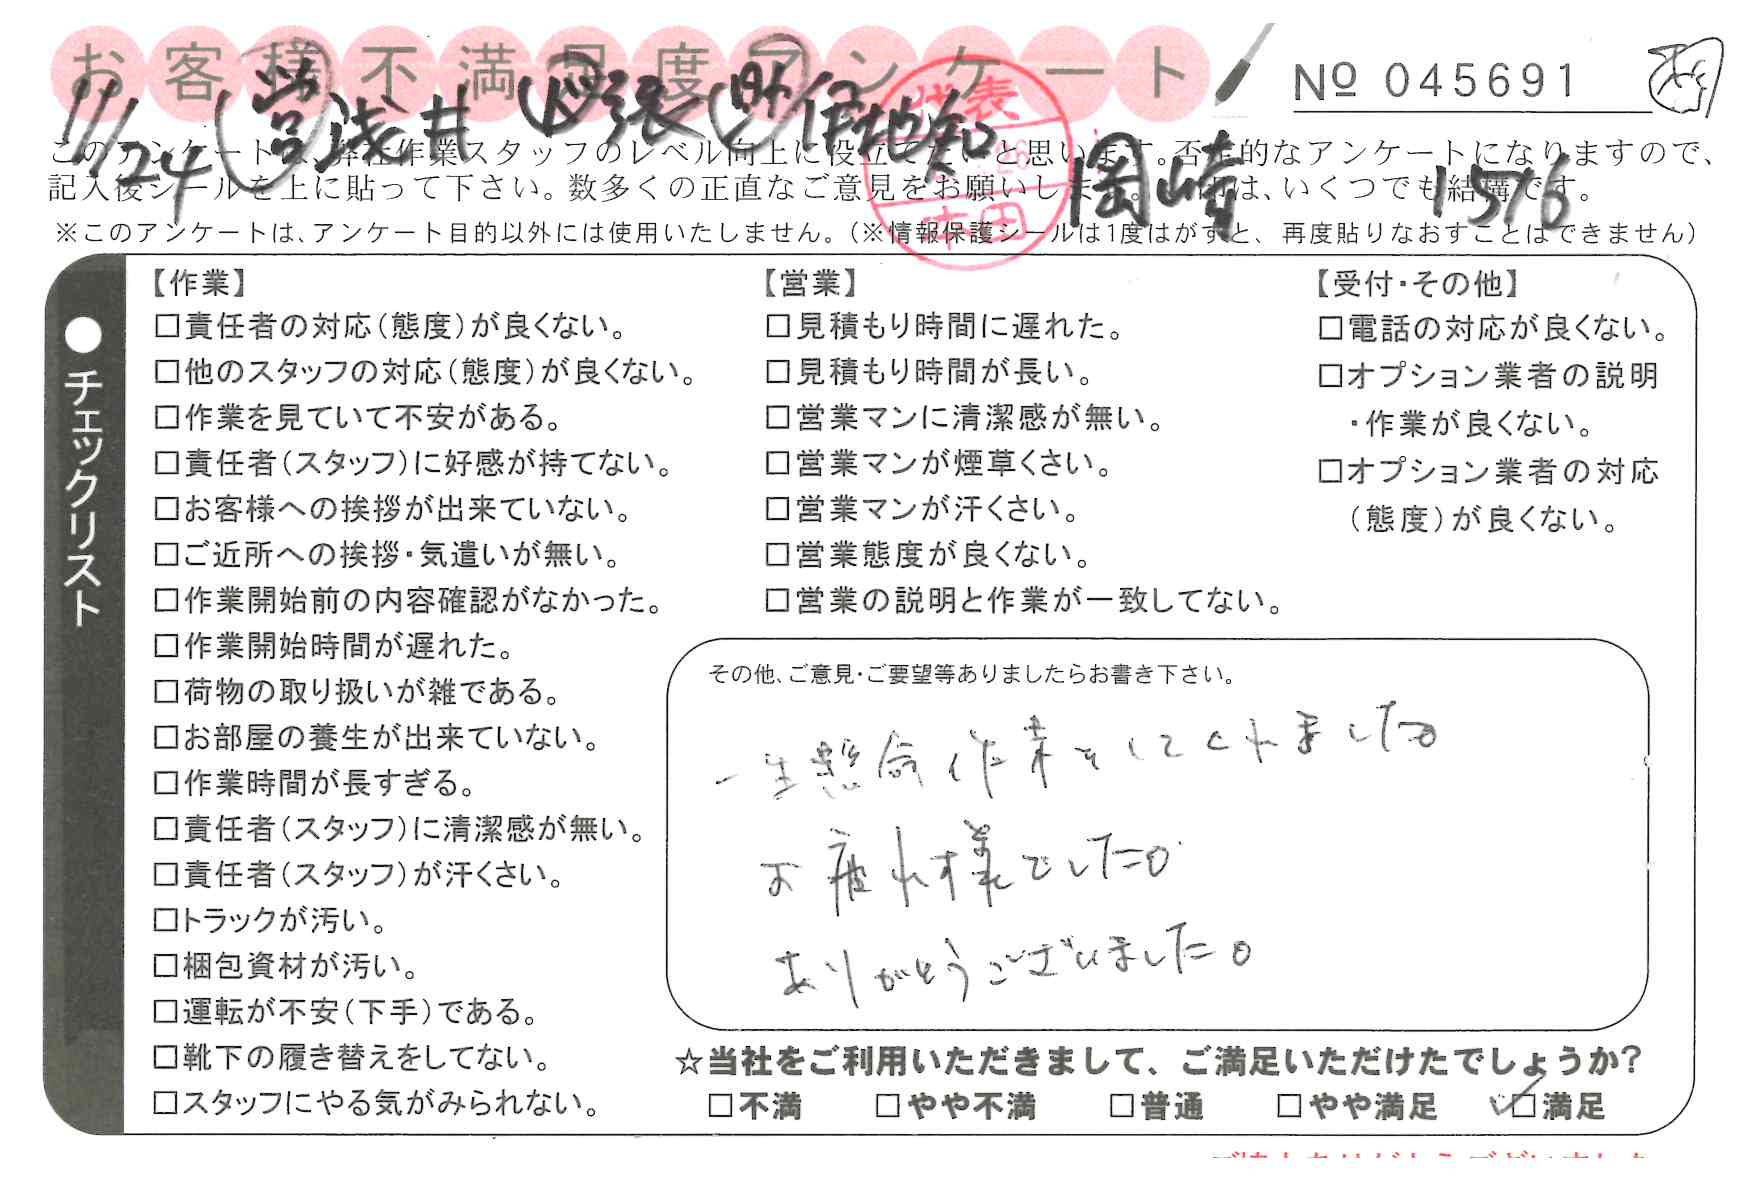 お客様不満足度アンケート
№ 045691
11/24 営 浅井 伊地知 岡崎 1516
代表
本田
このアンケートは、弊社作業スタッフのレベル向上に役立てたいと思います。否定的なアンケートになりますので、
記入後シールを上に貼って下さい。数多くの正直なご意見をお願いします。 印は、いくつでも結構です。
※このアンケートは、アンケート目的以外には使用いたしません。(※情報保護シールは1度はがすと、再度貼りなおすことはできません)
●チェックリスト
【作業】
□責任者の対応(態度)が良くない。
□他のスタッフの対応(態度)が良くない。
□作業を見ていて不安がある。
□責任者(スタッフ)に好感が持てない。
□お客様への挨拶が出来ていない。
□ご近所への挨拶・気遣いが無い。
□作業開始前の内容確認がなかった。
□作業開始時間が遅れた。
□荷物の取り扱いが雑である。
□お部屋の養生が出来ていない。
□作業時間が長すぎる。
□責任者(スタッフ)に清潔感が無い。
□責任者(スタッフ)が汗くさい。
□トラックが汚い。
□梱包資材が汚い。
□運転が不安(下手)である。
□靴下の履き替えをしてない。
□スタッフにやる気がみられない。
【営業】
□見積もり時間に遅れた。
□見積もり時間が長い。
□営業マンに清潔感が無い。
□営業マンが煙草くさい。
□営業マンが汗くさい。
□営業態度が良くない。
□営業の説明と作業が一致してない。
【受付・その他】
□電話の対応が良くない。
□オプション業者の説明
・作業が良くない。
□オプション業者の対応
(態度)が良くない。
その他、ご意見・ご要望等ありましたらお書き下さい。
一生懸命作業をしてくれました。
お疲れ様でした。
ありがとうございました。
☆当社をご利用いただきまして、ご満足いただけたでしょうか?
□不満 □やや不満 □普通 □やや満足 ✓□満足